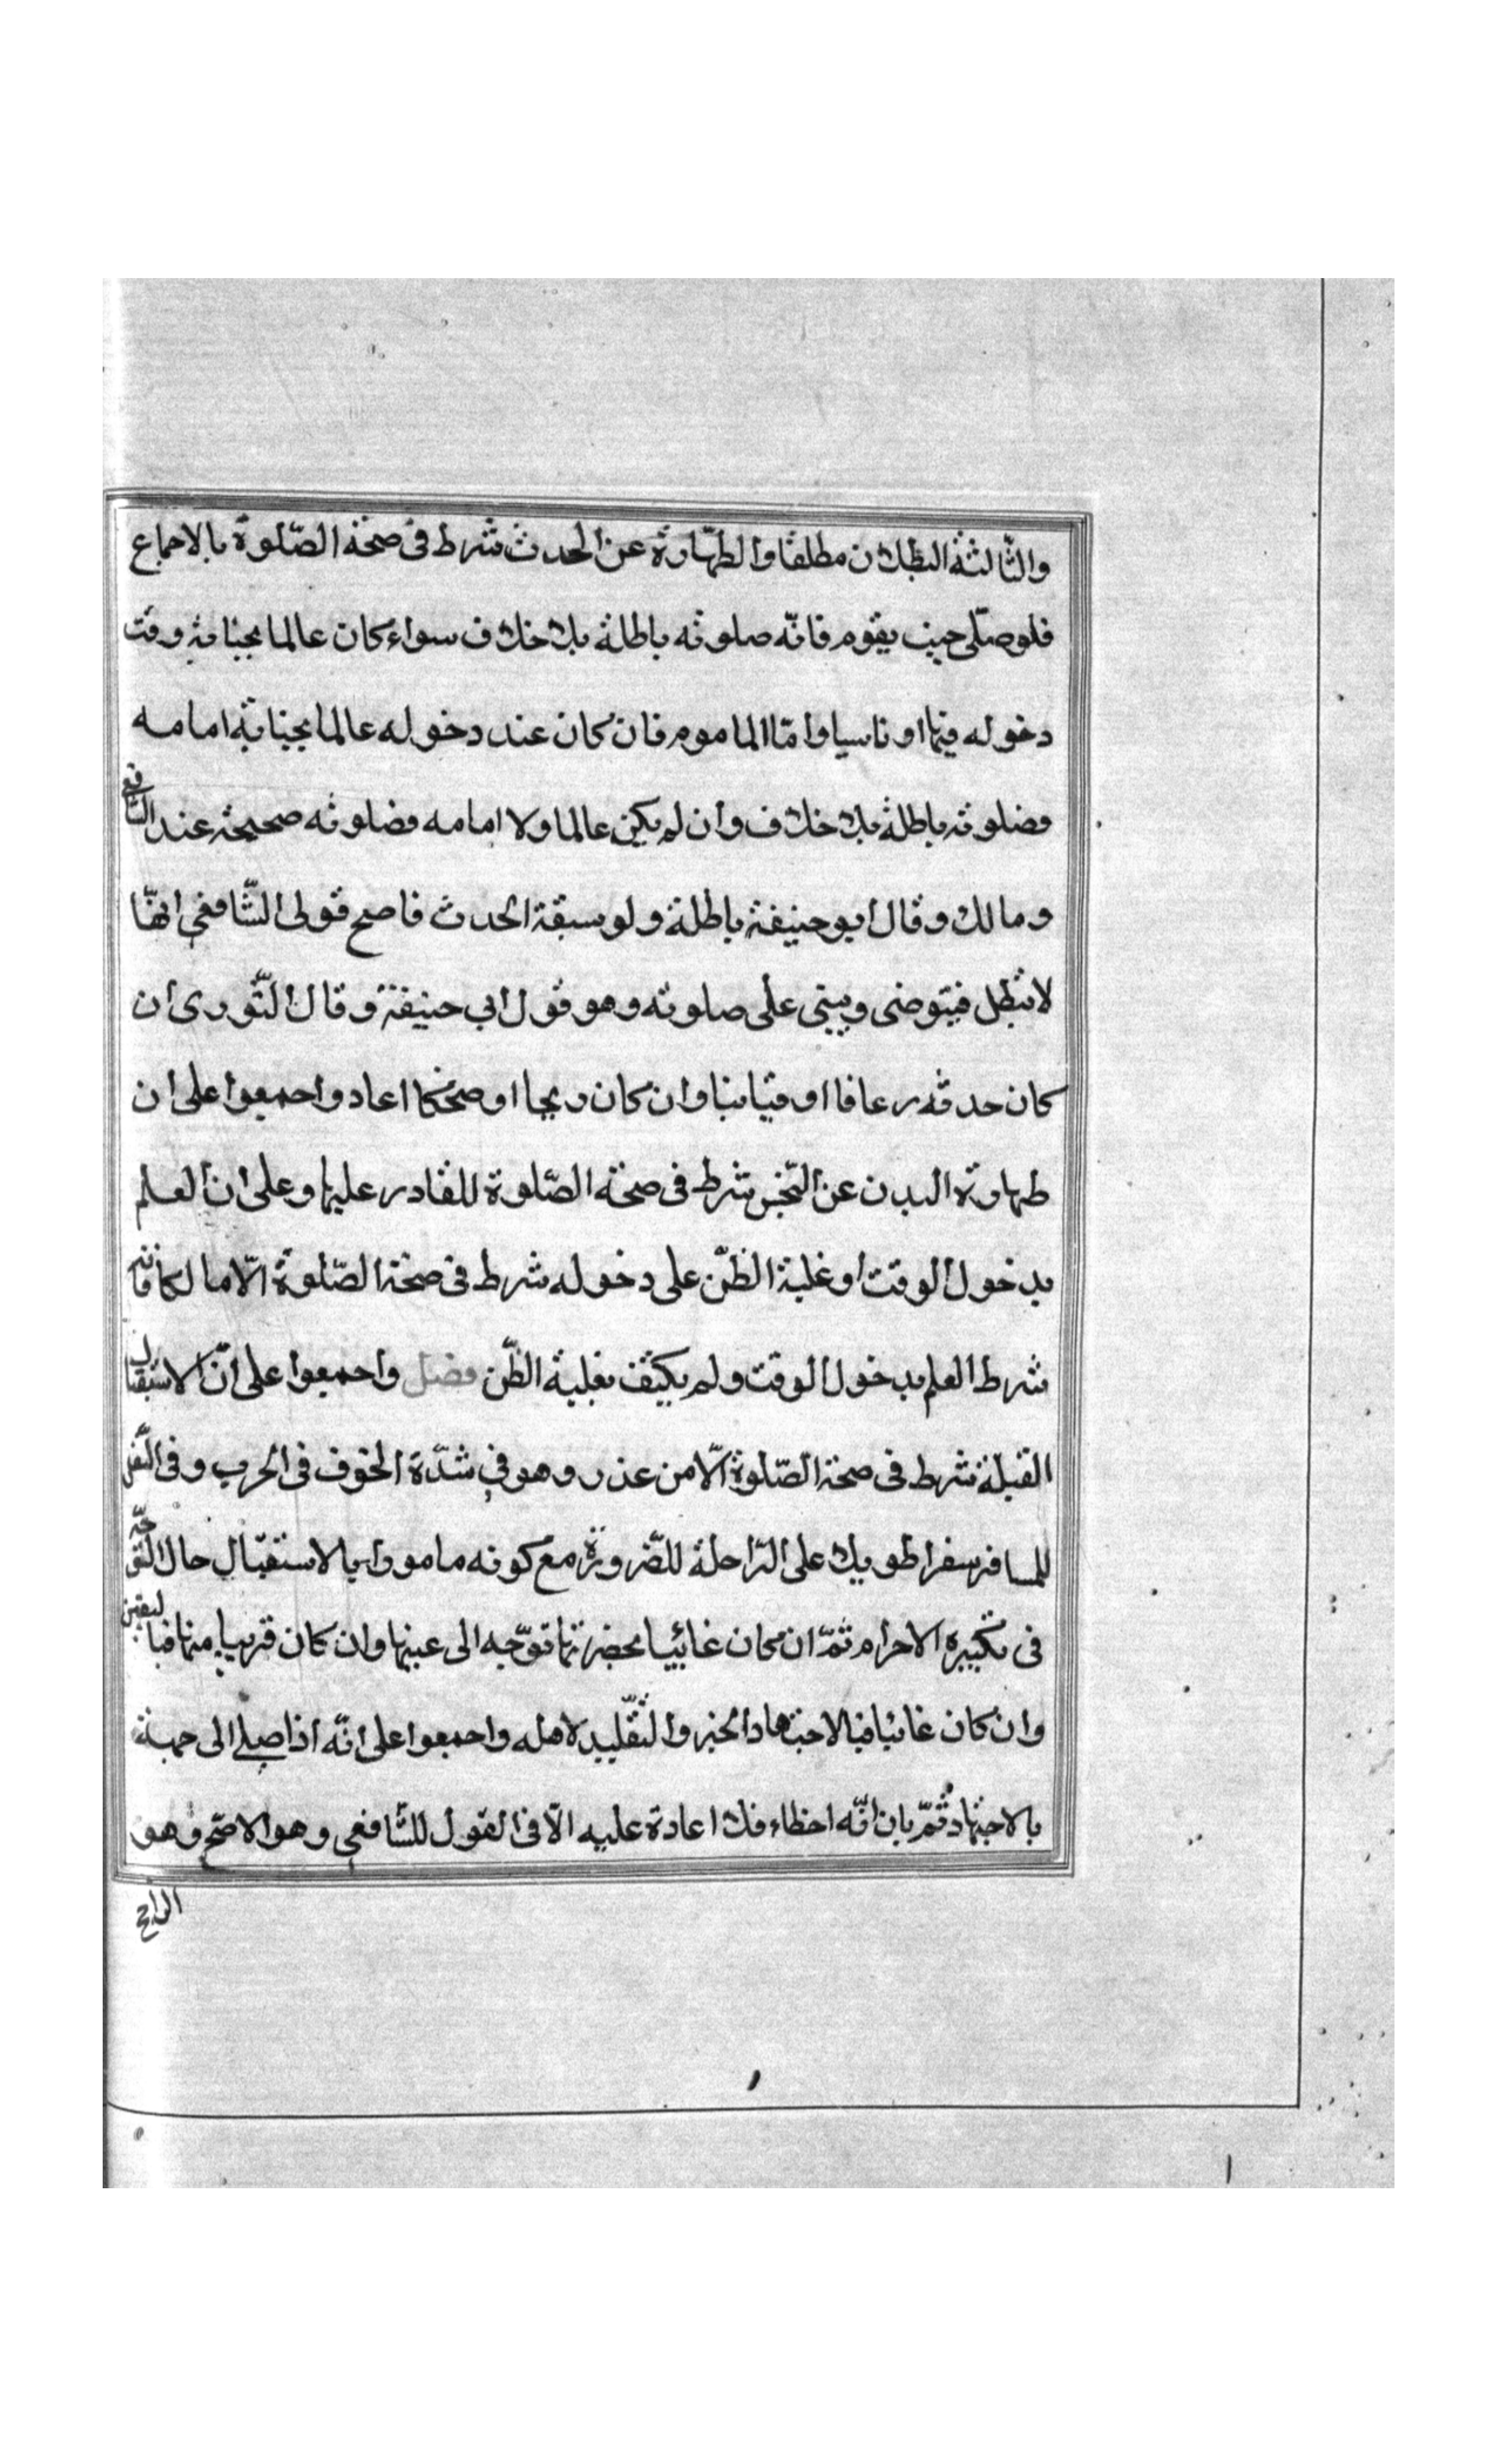 والثالثة البطلان مطلقا والطهارة عن الحدث شرط فى صحة الصّلوة بالاجماع
فلو صلّى جنب بقوم فانّه صلوته باطلة بلا خلاف سواء كان عالما بجنابته وقت
دخوله فيها او ناسيا وامّا الماموم فان كان عند دخوله عالما بجنابة امامه
فصلوته باطلة بلا خلاف وان لم يكن عالما ولا امامه فصلوته صحيحة عند الشافعى
ومالك وقال ابو حنيفة باطلة ولو سبقة الحدث فاصح قولى الشّافعى انهّا
لا تبطل فيتوضى ويبنى على صلوته وهو قول ابى حنيفة وقال الثّورى ان
كان حدثه رعافا او قيئا بنا وان كان ريحا او ضحكا اعاد واجمعوا على ان
طهارة البدن عن النّجس شرط فى صحة الصّلوة للقادر عليها وعلى ان العلم
بدخول الوقت او غلبة الظّن على دخوله شرط فى صحة الصّلوة الّا مالكا فانه
شرط العلم بدخول الوقت ولم يكتف بغلبة الظّن فصل واجمعوا على انّ الاستقبال
القبلة شرط فى صحة الصّلوة الّا من عذر وهو فى شدّة الخوف فى الحرب وفى النّفل
للمسافر سفرا طويلا على الرّاحلة للضّرورة مع كونه مامورا بالاستقبال حال التوجّه
فى تكبيرة الاحرام ثمّ ان كان غائبيا بحضرتها توّجه الى عينها وان كان قريبا منها فباليقين
وان كان غائبا فبالاجتهاد الخبر والتّقليد لاهله واجمعوا على انّه اذا صلى الى جهة
بالاجتهاد ثمّ بان انّه اخطاء فلا اعادة عليه الّا فى القول للشّافعى وهو الاصحّ وهو
الراجح